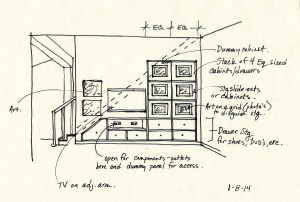 EQ. EQ.
Dummy cabinet.
Stack of 4 Eq. sized
cabinets/drawers
Stg slide-outs
or cabinets.
Art on a grid (photo's)
to disguise stg.
Drawer Stg.
for shoes, DVD's, etc.
Art.
open for components - outlets
here and dummy panel for access.
TV on adj. arm.
1-8-14